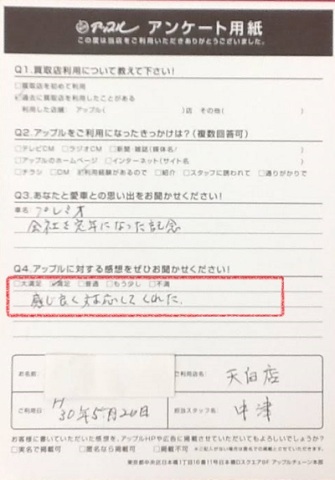 アップル アンケート用紙
この度は当店をご利用いただきありがとうございました。
Q1.買取店利用について教えて下さい!
□買取店を初めて利用
☑過去に買取店を利用したことがある
利用した店舗: アップル( )店 その他( )
Q2.アップルをご利用になったきっかけは?(複数回答可)
□テレビCM □ラジオCM □新聞・雑誌(媒体名: )
□アップルのホームページ □インターネット(サイト名 )
□チラシ □DM ☑利用経験があるので □紹介 □スタッフに誘われて □通りがかりで
Q3.あなたと愛車との思い出をお聞かせください!
車名 プレミオ
会社を定年になった記念
Q4.アップルに対する感想をぜひお聞かせください!
□大満足 ☑満足 □普通 □もう少し □不満
感じ良く対応してくれた.
お名前
ご利用店名: 天白店
ご利用日 H30年5月20日
担当スタッフ名: 中津
お客様に書いていただいた感想を、アップルHPや広告に掲載させていただいてもよろしいでしょうか?
□実名で掲載可 □匿名なら掲載可 □掲載不可
東京都中央区日本橋1丁目16番11号日本橋Dスクエア8F アップルチェーン本部